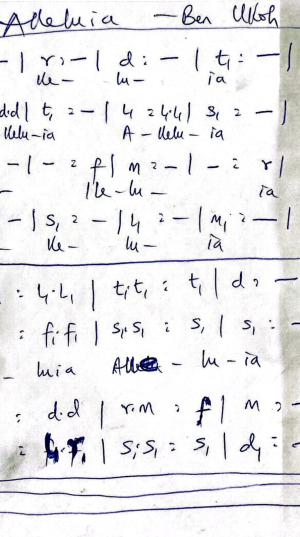 Alleluia — Ben
— | r : — | d : — | t₁ : — |
lle — lu — ia
d.d | t₁ : — | l₁ : l₁.l₁ | s₁ : — |
llelu - ia A - llelu - ia
— | — : f | m : — | — : r |
lle - lu — ia
— | s₁ : — | l₁ : — | m₁ : — |
lle — lu — ia
: l₁.l₁ | t₁.t₁ : t₁ | d : —
: f₁.f₁ | s₁.s₁ : s₁ | s₁ : —
- luia Alle - lu - ia
: d.d | r.m : f | m : —
| s₁.s₁ : s₁ | d₁ : —